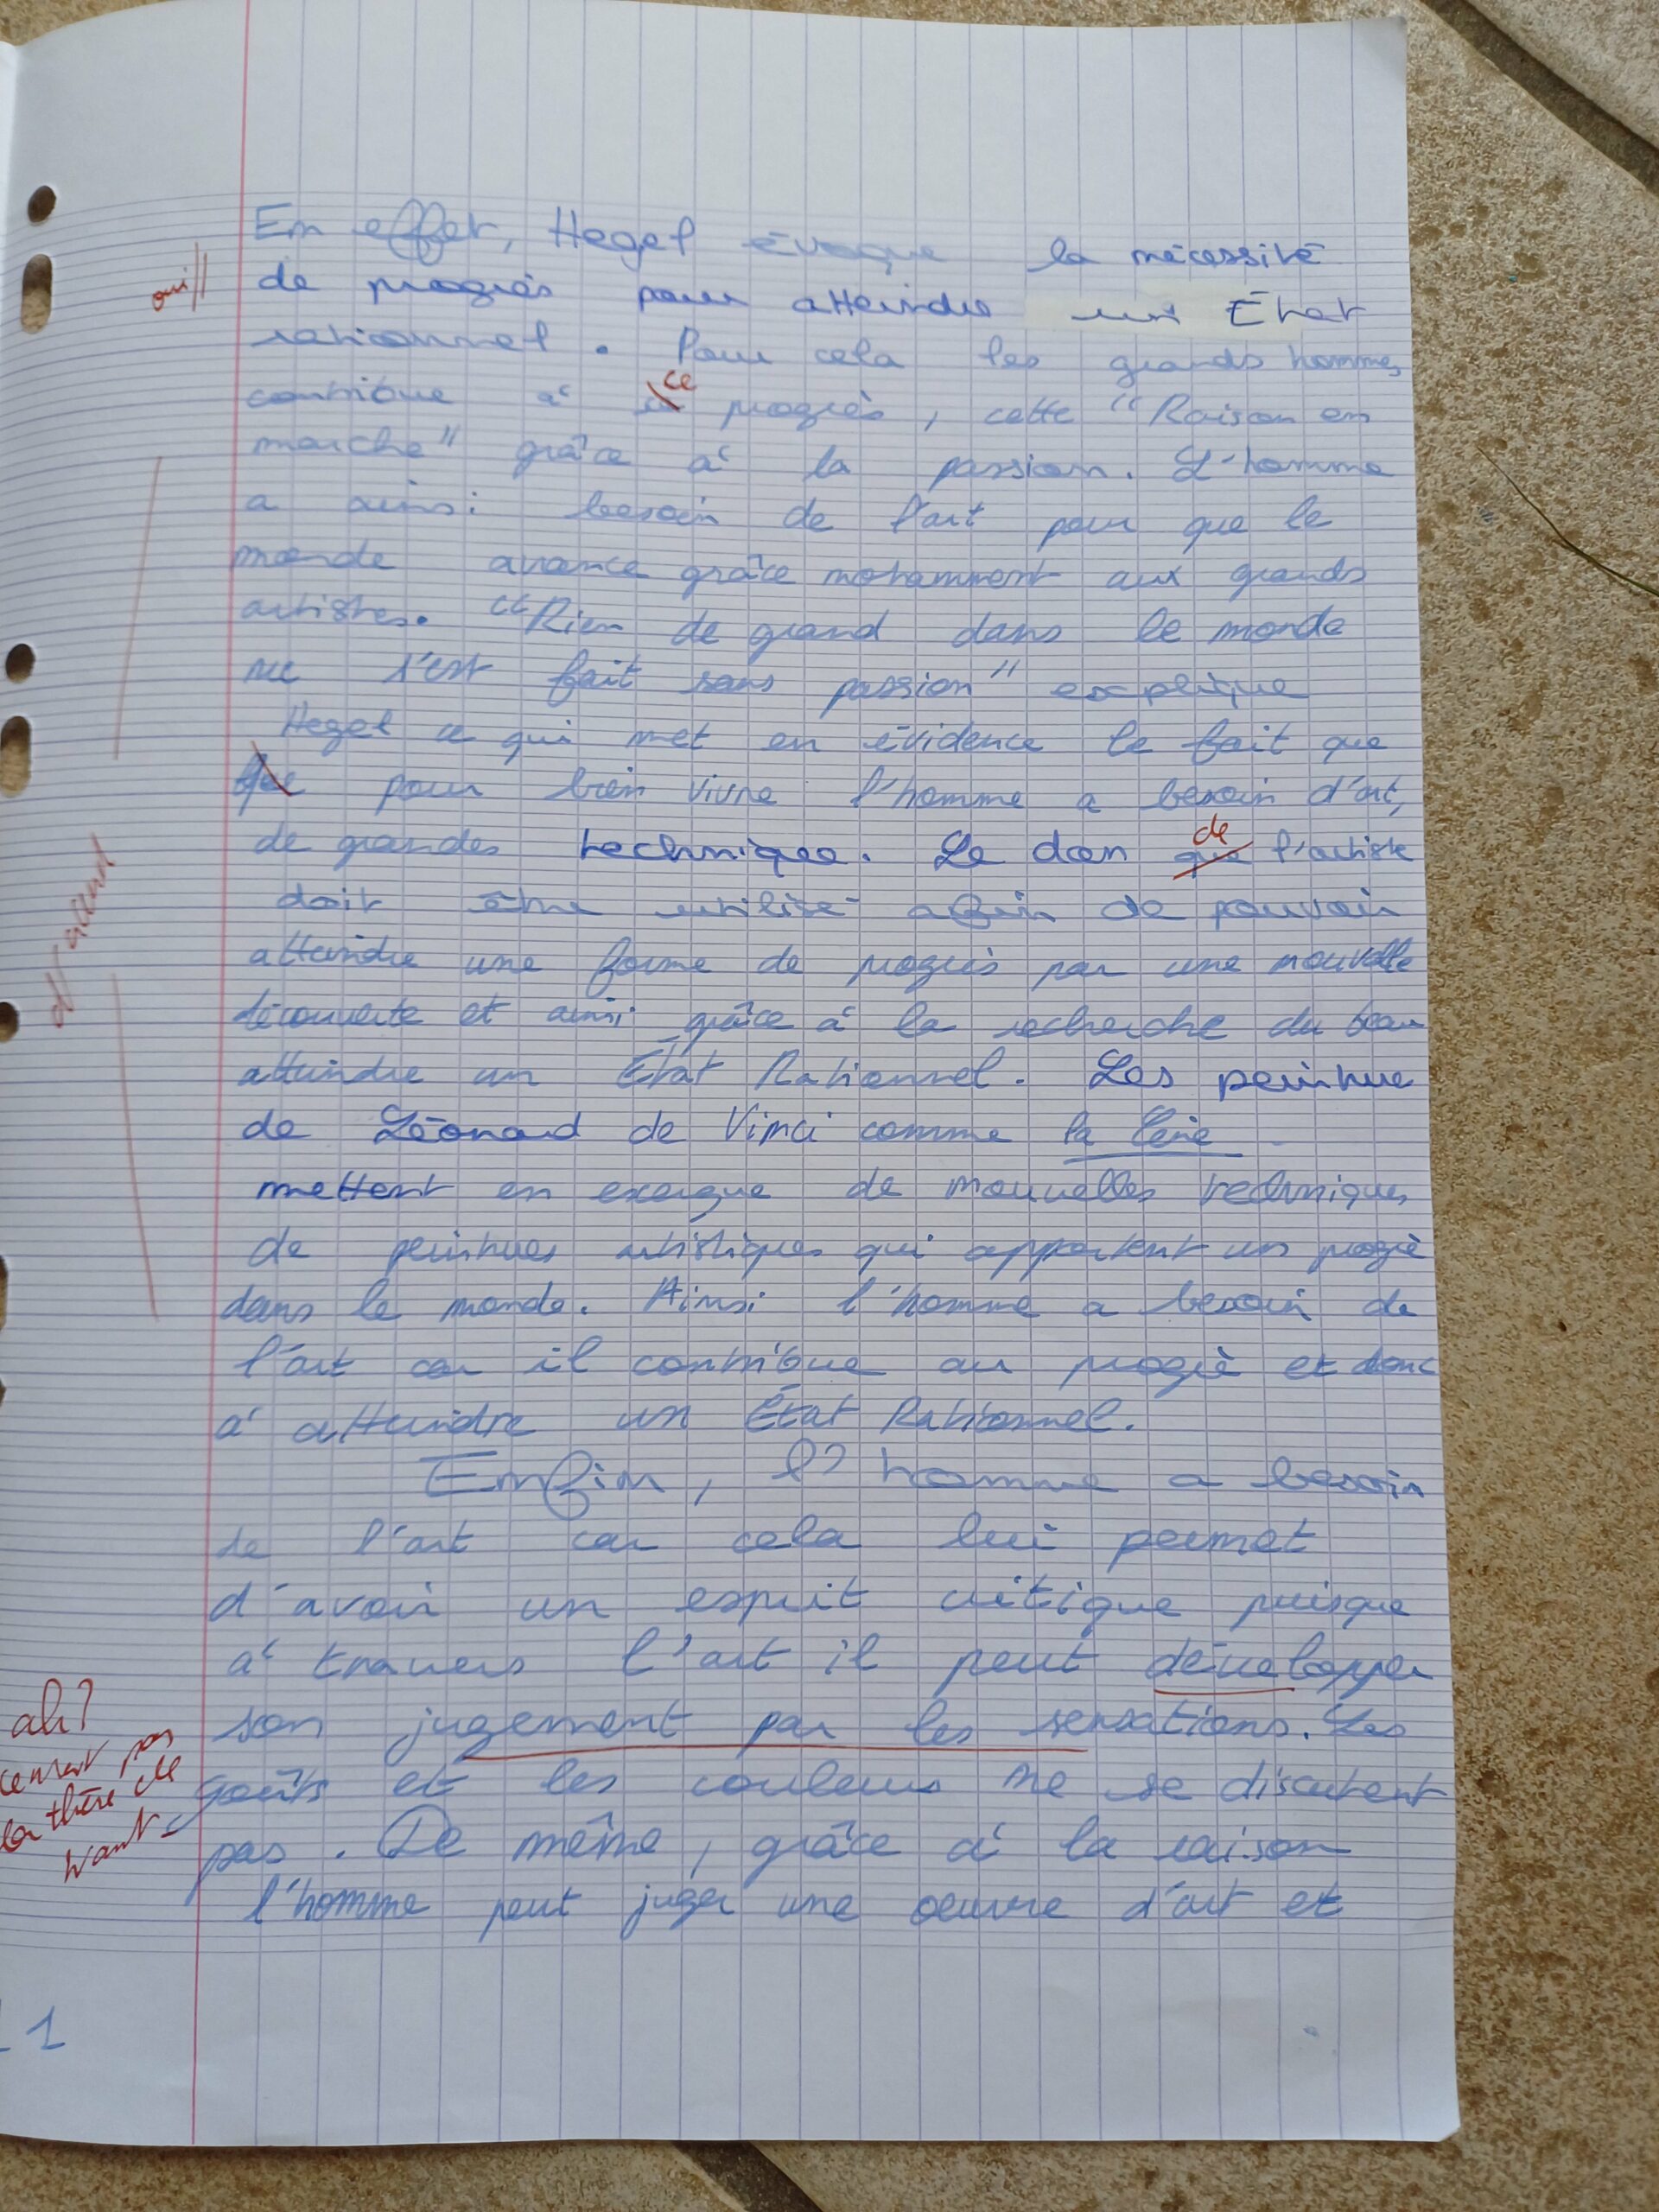 En effet, Hegel évoque la nécessité
oui
de progrès pour atteindre un État
rationnel. Pour cela les grands hommes
ce
contribue à progrès, cette "Raison en
marche" grâce à la passion. L'homme
a ainsi besoin de l'art pour que le
monde avance grâce notamment aux grands
artistes. "Rien de grand dans le monde
ne s'est fait sans passion" explique
Hegel ce qui met en évidence le fait que
pour bien vivre l'homme a besoin d'art,
de grandes technique. Le don de l'artiste
doit être utilisé afin de pouvoir
atteindre une forme de progrès par une nouvelle
découverte et ainsi grâce à la recherche du beau
atteindre un État Rationnel. Les peinture
de Léonard de Vinci comme la Cène
mettent en exergue de nouvelles techniques
de peintures artistiques qui apportent un progrè
dans le monde. Ainsi l'homme a besoin de
l'art car il contribue au progrè et donc
à atteindre un État Rationnel.
Enfin, l'homme a besoin
de l'art car cela lui permet
d'avoir un esprit critique puisque
à travers l'art il peut développer
ah?
son jugement par les sensations. Les
pas
goûts et les couleurs ne se discutent
la thèse de
Kant
pas. De même, grâce à la raison
l'homme peut juger une oeuvre d'art et
1